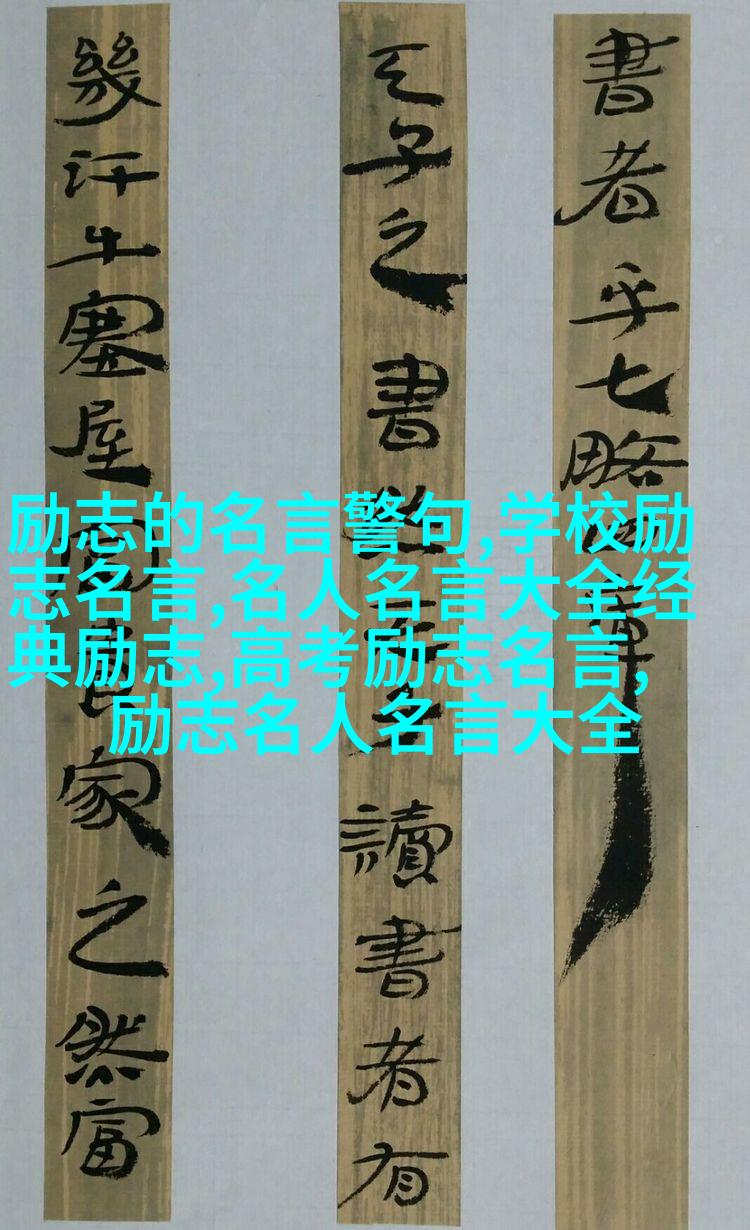 書者乎七略四庫
天子之書然天子讀書者有
幾汗牛塞屋富貴家之然富
励志的名言警句,学校励
志名言,名人名言大全经
典励志,高考励志名言,
励志名人名言大全